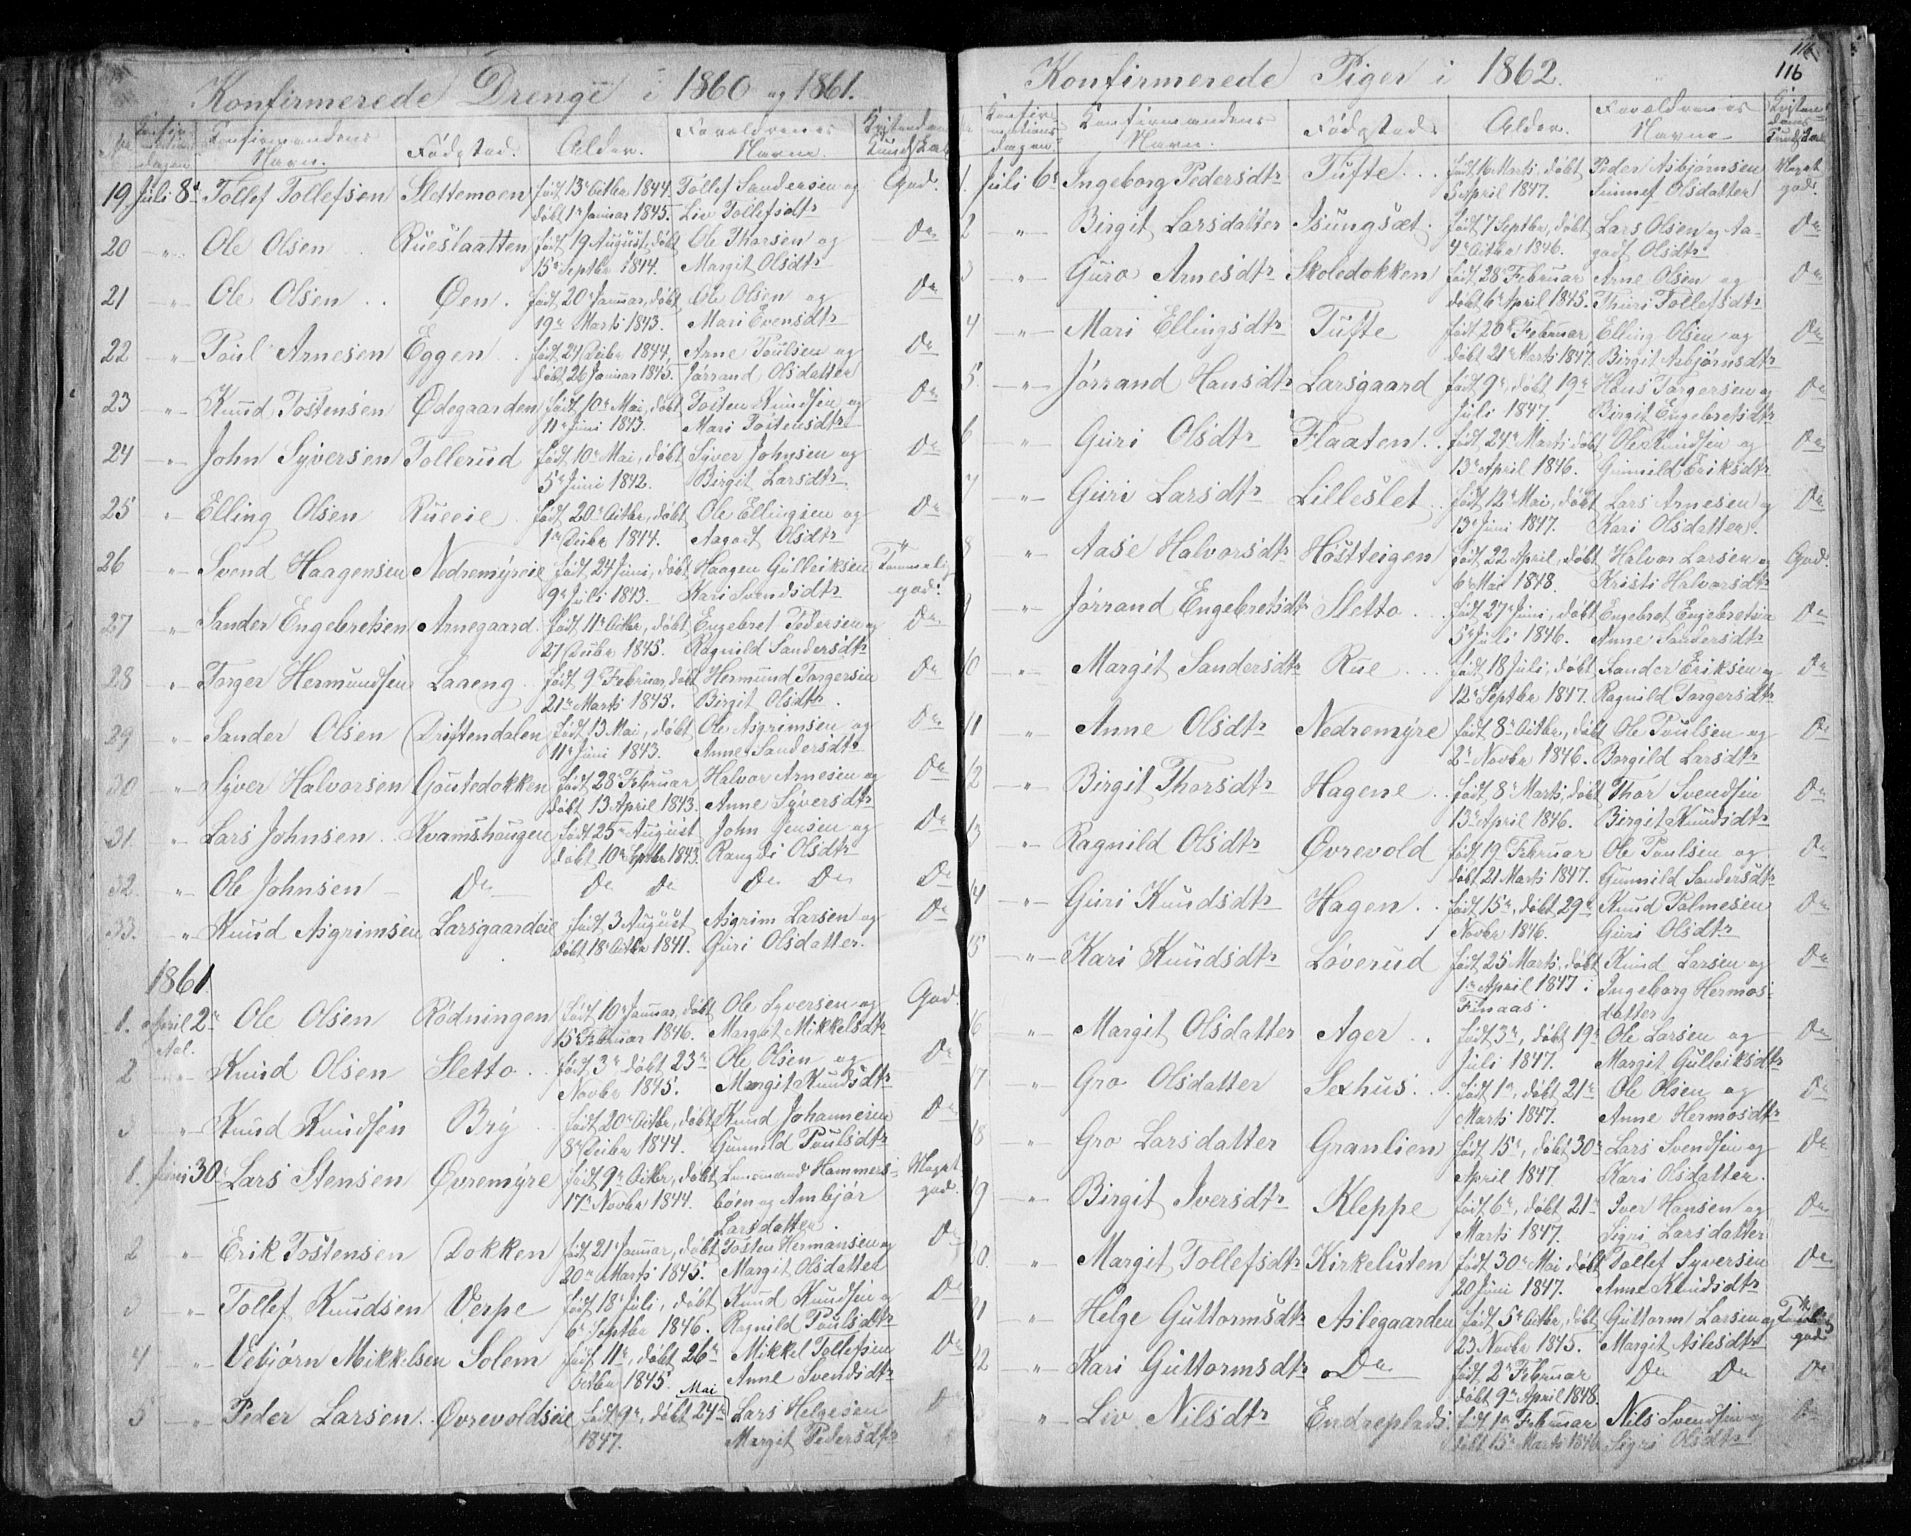 Konfirmerede Drenge i 1860 og 1861.
No Konfirmationsdagen. Konfirmandens Navn. Fødested. Alder. Forældrenes Navne. Kristendoms Kundskab
19 Juli 8de Tollef Tollefsen Slettemoen født 13de Octbr 1844. Tollef Sandersen og God.
døbt 1ste Januar 1845. Liv Tollefsdtr
20 -"- Ole Olsen Rueslaatten født 19 August, døbt Ole Thorsen og Do
15de Septbr 1844. Margit Olsdtr
21 -"- Ole Olsen Øen. født 20de Januar, døbt Ole Olsen og Do
19de Marts 1843. Mari Evensdtr
22 -"- Poul Arnesen Eggen født 24 Decbr 1844, Arne Poulsen og Do
døbt 26 Januar 1845. Jørrand Olsdatter
23 -"- Knud Tostensen Ødegaarden født 10de Mai, døbt Tosten Knudsen og Do
11te Juni 1843. Mari Tostensdtr
24 -"- John Syversen Tollerud født 10de Mai, døbt Syver Johnsen og Do
5te Juni 1842. Birgit Larsdtr
25 -"- Elling Olsen Rueeie født 20de Octbr, døbt Ole Ellingsen og Do
1ste Decbr 1844. Aagodt Olsdtr
26 " Svend Haagensen Nedremyreie født 24 Juni, døbt Haagen Gulleiksen Temmelig
9de Juli 1843. Kari Svendsdtr god.
27 " Sander Engebretsen Arnegaard født 11te Octbr, døbt Engebret Pedersen og Do
27 Decbr 1845. Ragnild Sandersdtr
28 " Torger Hermundsen Laaeng født 9de Februar, døbt Hermund Torgersen Do
21de Marts 1845. Birgit Olsdtr
29 " Sander Olsen Driftendalen født 13 Mai, døbt Ole Asgrimsen og Do
11te Juni 1843. Anne Sandersdtr
30 -"- Syver Halvorsen Goustedokken født 28de Februar Halvor Arnesen og Do
døbt 13 April 1843. Anne Syversdtr
31. " Lars Johnsen Kvamshaugen født 25de August John Jensen og Do
døbt 10de Septbr 1843. Rangdi Olsdtr
32. " Ole Johnsen Do Do Do Do Do Do
33. " Knud Asgrimsen Larsgaardeie født 3 August Asgrim Larsen og Do
døbt 18de Octbr 1841. Guri Olsdatter.
1861.
1. April 2den Ole Olsen Rødningen født 10de Januar, døbt Ole Syversen og God.
Aal. 15de Februar 1846. Margit Mikkelsdtr
2 -"- Knud Olsen Sletto født 3de, døbt 23de Ole Olsen og Do
Novbr 1845. Margit Knudsdtr
3 -"- Knud Knudsen Bry født 20de Octbr, døbt Knud Johannesen Do
8de Decbr 1844. Gunnild Poulsdtr
1. Juni 30te Lars Stensen Øvremyre født 9de Octbr, døbt Hammers- Meget
17de Novbr 1844. bøen og Ambjør god.
Larsdatter.
2 -"- Erik Tostensen Dokken født 21de Januar, døbt Tosten Hermansen og Do
20de Marts 1845. Margit Olsdatter
3 -"- Tollef Knudsen Verpe født 18de Juli, døbt Knud Knudsen og Do
6te Septbr 1846. Ragnild Poulsdtr
4 -"- Vebjørn Mikkelsen Solem født 11te, døbt 26de Mikkel Tollefsen Do
Octbr 1845. Anne Svendsdtr
5 -"- Peder Larsen Øvrevoldseie født 9de, døbt 24de Mai Lars Helgesen Do
1847. Margit Pedersdtr
116
116
Konfirmerede Piger i 1862.
Konfirmationsdagen. Konfirmandens Navn. Fødested. Alder. Forældrenes Navne. Kristendoms Kundskab
1. Juli 6te Ingeborg Pedersdtr Tufte født Marts, døbt Peder Asbjørnsen Meget
5 April 1847. Sunnef Olsdatter god.
2 -"- Birgit Larsdatter Isungsæt født 7 Septbr, døbt Lars Olsen og Aa- Do
4de Octbr 1846. godt Olsdtr
3 -"- Guro Arnesdtr Skoledokken født 28 Februar Arne Olsen og Do
døbt 6te April 1845. Thuri Tollefsdtr
4 -"- Mari Ellingsdtr Tufte født 20de Februar, Elling Olsen og Do
døbt 21de Marts 1847. Birgit Asbjørnsdtr
5. -"- Jørrand Hansdtr Larsgaard født 9de, døbt 19de Hans Torgersen og Do
Juli 1847. Birgit Engebretsdtr
6 -"- Guri Olsdtr Flaaten født 24de Marts, døbt Ole Knudsen og Do
13de April 1846. Gunnild Eriksdtr
7 -"- Guri Larsdtr Lilleslet født 12te Mai, døbt Lars Arnesen og Do
13de Juni 1847. Kari Olsdatter.
8 -"- Aase Halvorsdtr Høstteigen født 22 April, døbt Halvor Larsen og God.
6te Mai 1848. Kristi Halvorsdtr
9 -"- Jørrand Engebretsdtr Sletto født 27de Juni, døbt Engebret Engebretsen Do
5te Juli 1846. Anne Sandersdtr
10 " Margit Sandersdtr Rue født 18 Juli, døbt Sander Eriksen og Do
12te Septbr 1847. Ragnild Torgersdtr
11 " Anne Olsdtr Nedremyre født 8de Octbr, døbt Ole Poulsen og Do
2den Novbr 1846. Borgild Larsdtr
12 " Birgit Thorsdtr Hagene født 8de Marts, døbt Thor Svendsen Do
13de April 1846. Birgit Knudsdtr
13 " Ragnild Olsdtr Øvrevold født 19 Februar Ole Poulsen og Do
døbt 21 Marts 1847. Gunnild Sandersdtr
14 -"- Guri Knudsdtr Hagen født 15de, døbt 29de Knud Palmesen Do
Novbr 1846. Guri Olsdtr
15 -"- Kari Knudsdtr Løverud født 25 Marts, døbt Knud Larsen og Do
1ste April 1847 i Ingeborg Hermos-
Finaas. datter
16 " Margit Olsdatter Ager født 3de, døbt 19de Ole Larsen og Do
Juli 1847. Margit Gulleiksdtr
17 " Gro Olsdatter Sexhus født 1ste, døbt 21de Ole Olsen og Do
Marts 1847. Anne Hermosdtr
18 -"- Gro Larsdatter Granlien født 15de, døbt 30te Lars Svendsen og Do
April 1847. Kari Olsdatter.
19 -"- Birgit Iversdtr Kleppe født 6te, døbt 21de Iver Hansen og Do
Marts 1847. Sigri Larsdatter
20. -"- Margit Tollefsdtr Kirkeluten født 30te Mai, døbt Tollef Syversen Do
20 Juni 1847. Anne Knudsdtr
21 -"- Helge Guttormsdtr Aslegaarden født 5te Octbr, døbt Guttorm Larsen og Temmelig
23 Novbr 1845. Margit Aslesdtr god
22 -"- Kari Guttormsdtr Do født 2den Februar Do Do Do
døbt 9de April 1848.
" Liv Nilsdtr Endreplads født 1ste Februar Nils Svendsen og Do
døbt 15de Marts 1846 Sigri Olsdtr